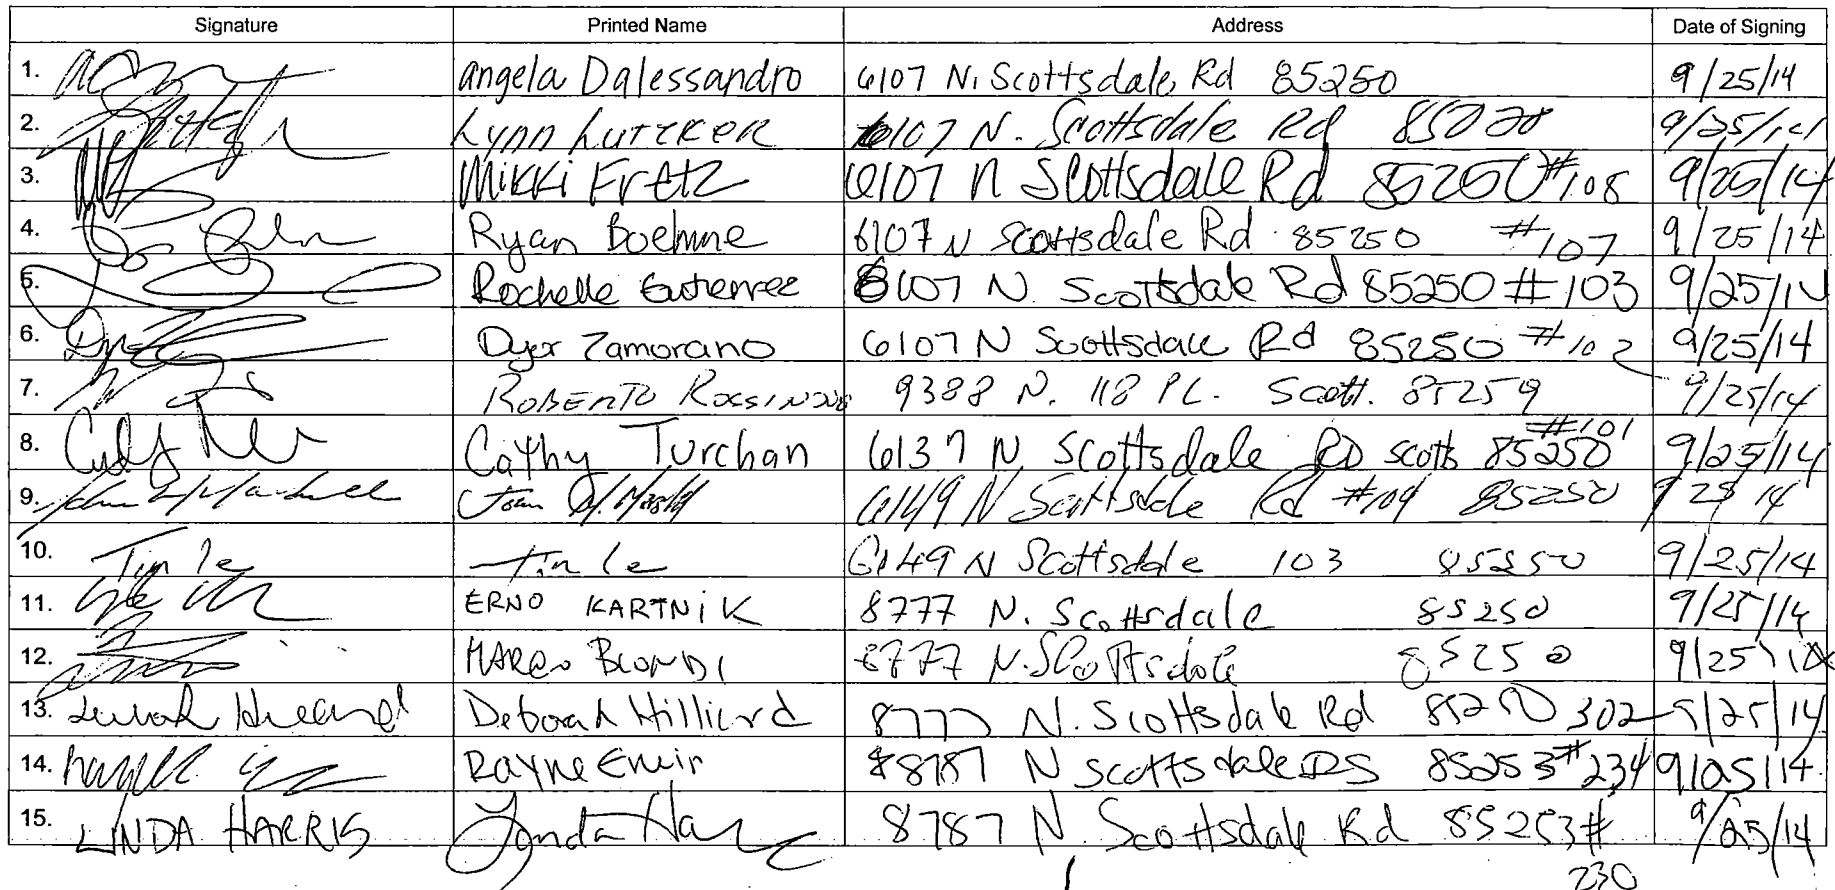 Signature Printed Name Address Date of Signing
1. Angela Dalessandro 6107 N. Scottsdale Rd 85250 9/25/14
2. Lynn Lutzker 6107 N. Scottsdale Rd 9/25/14
3. Mikki Fretz 6107 N Scottsdale Rd 85250 #108 9/25/14
4. Ryan Boehme 6107 N Scottsdale Rd 85250 #107 9/25/14
5. Rochelle 6107 N. Scottsdale Rd 85250 #103 9/25/14
6. Zamorano 6107 N Scottsdale Rd 85250 #102 9/25/14
7. ROBERTO 9388 N. 118 PL. Scott. 85259 9/25/14
8. Cathy Turchan 6137 N Scottsdale RD scotts 85250 #101 9/25/14
9. 6149 N Scottsdale Rd #104 85250 9 25 14
10. Tin le tin le 6149 N Scottsdale 103 85250 9/25/14
11. ERNO KARTNiK 8777 N. Scottsdale 85250 9/25/14
12. MARCO BLONDI 8777 N. Scottsdale 85250 9/25
13. Deborah Hilliard 8777 N. Scottsdale Rd 85250 302 9/25/14
14. Rayne 8787 N Scottsdale 85253 #234 9/25/14
15. LINDA HARRIS 8787 N Scottsdale Rd 85253 # 9/25/14
230